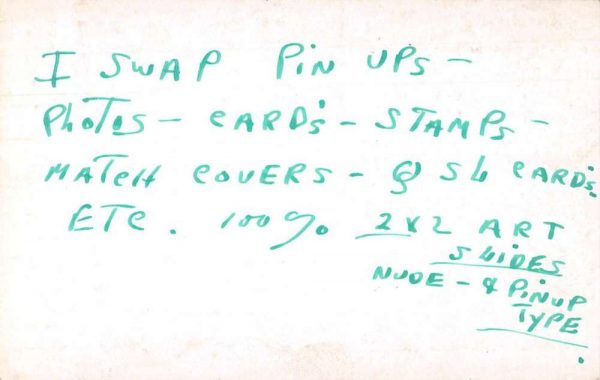 I SWAP PIN UPS -
PHOTOS - CARD'S - STAMPS -
MATCH COVERS - QSL CARD'S
ETC. 100% 2X2 ART
SLIDES
NUDE - & PINUP
TYPE.